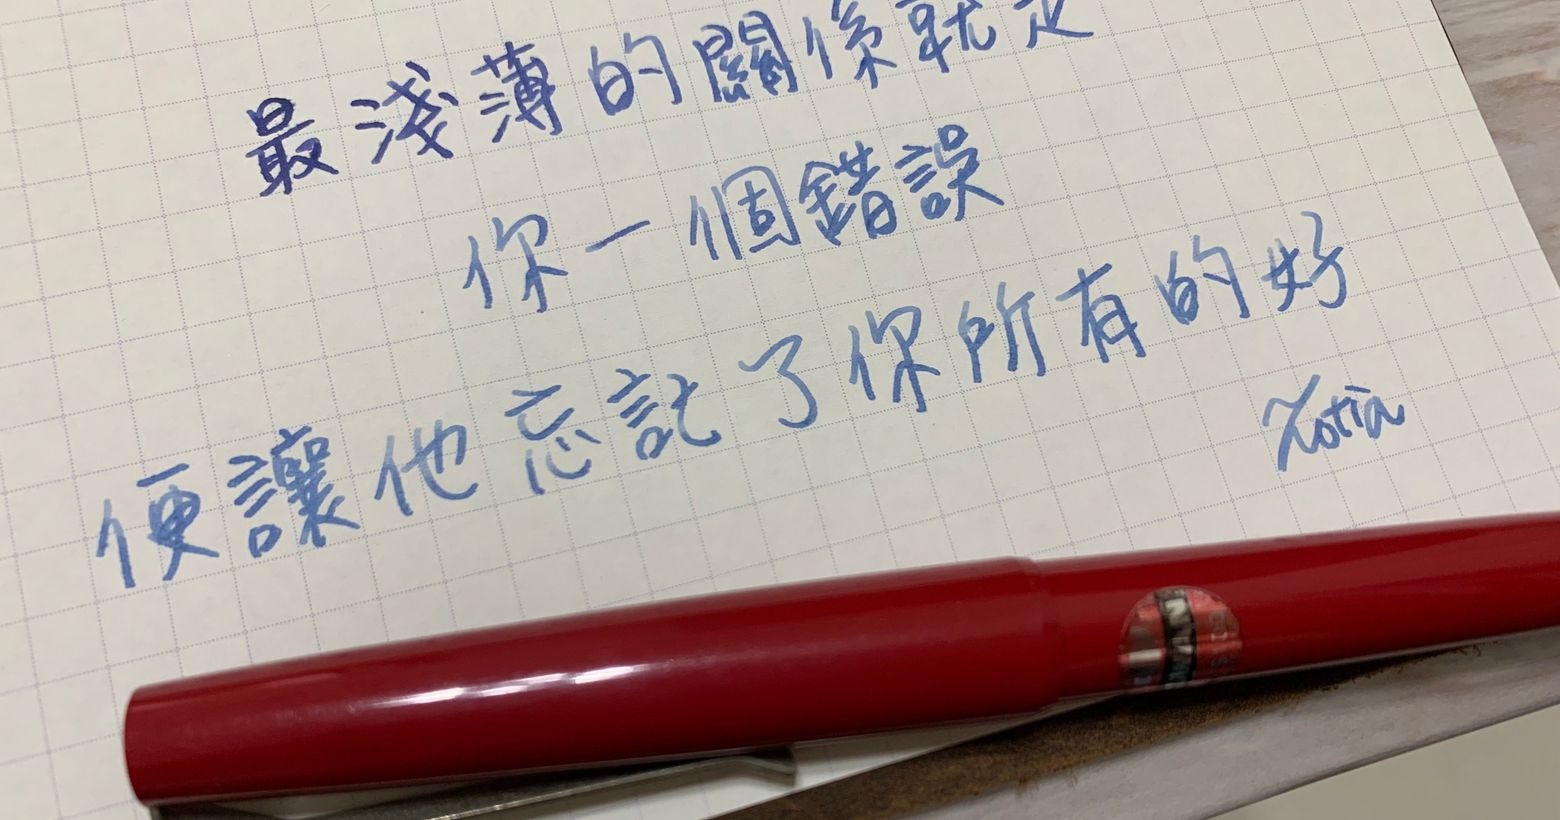 最淺薄的關係就是
你一個錯誤
便讓他忘記了你所有的好